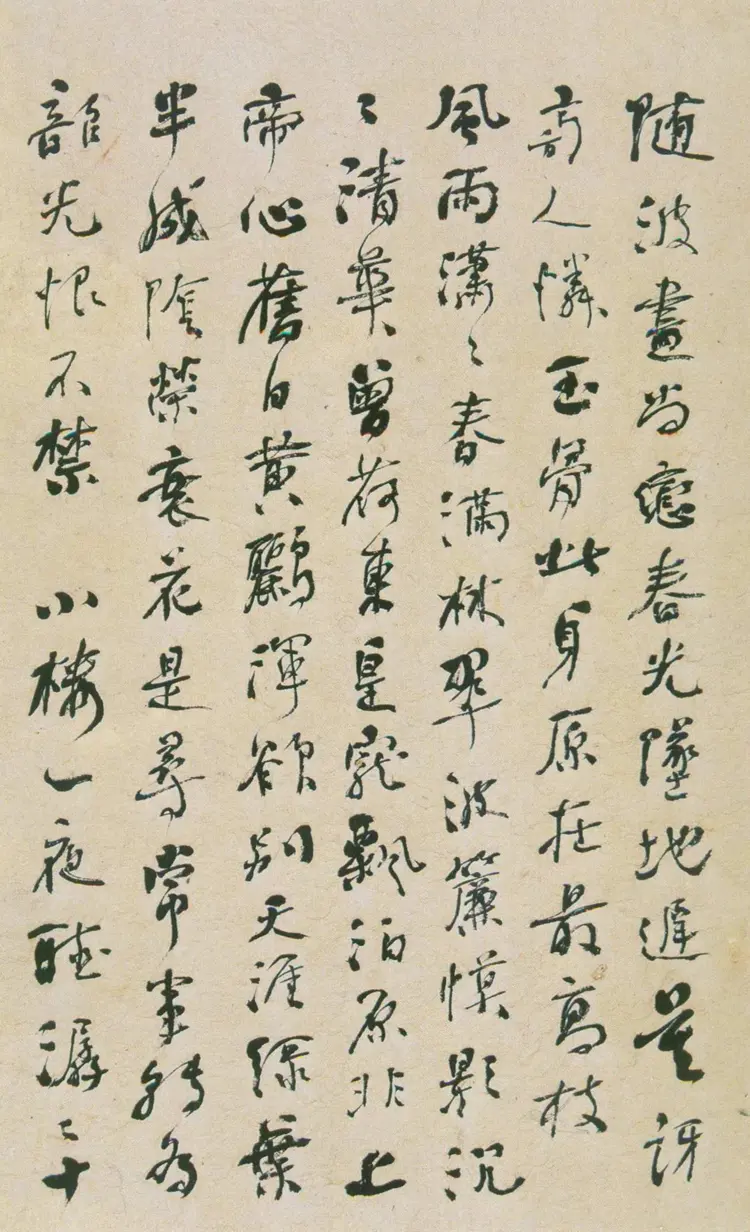 随波盡尚戀春光墜地遲莫訝
人憐玉骨此身原在最高枝
風雨瀟〻春滿林翠波簾幙影沉
〻清華曾荷東皇寵飄泊原非上
帝心舊日黃鸝渾欲別天涯綠葉
半成陰榮衰花是尋常事轉為
韶光恨不禁 小樓一夜聽潺〻十